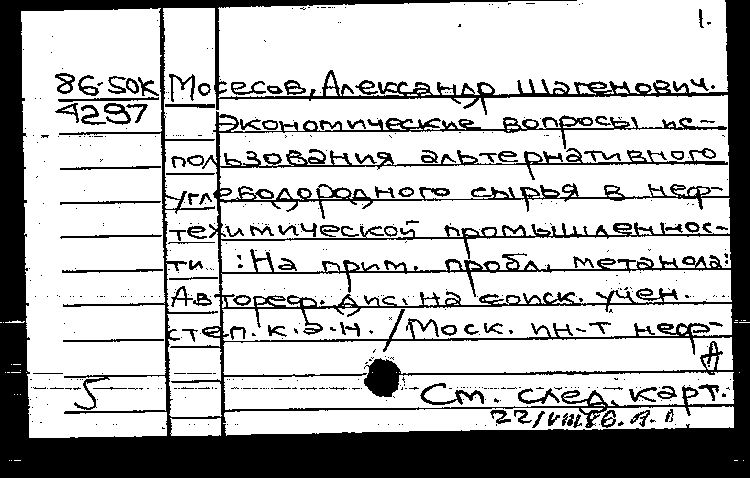 1.
86-50K Мосесов, Александр Шагенович.
4297
Экономические вопросы ис-
пользования альтернативного
углеводородного сырья в неф-
техимической промышленнос-
ти : На прим. пробл. метанола:
Автореф. дис. на соиск. учен.
степ. к.э.н. / Моск. ин-т неф-
5
См. след. карт.
22/VIII86.